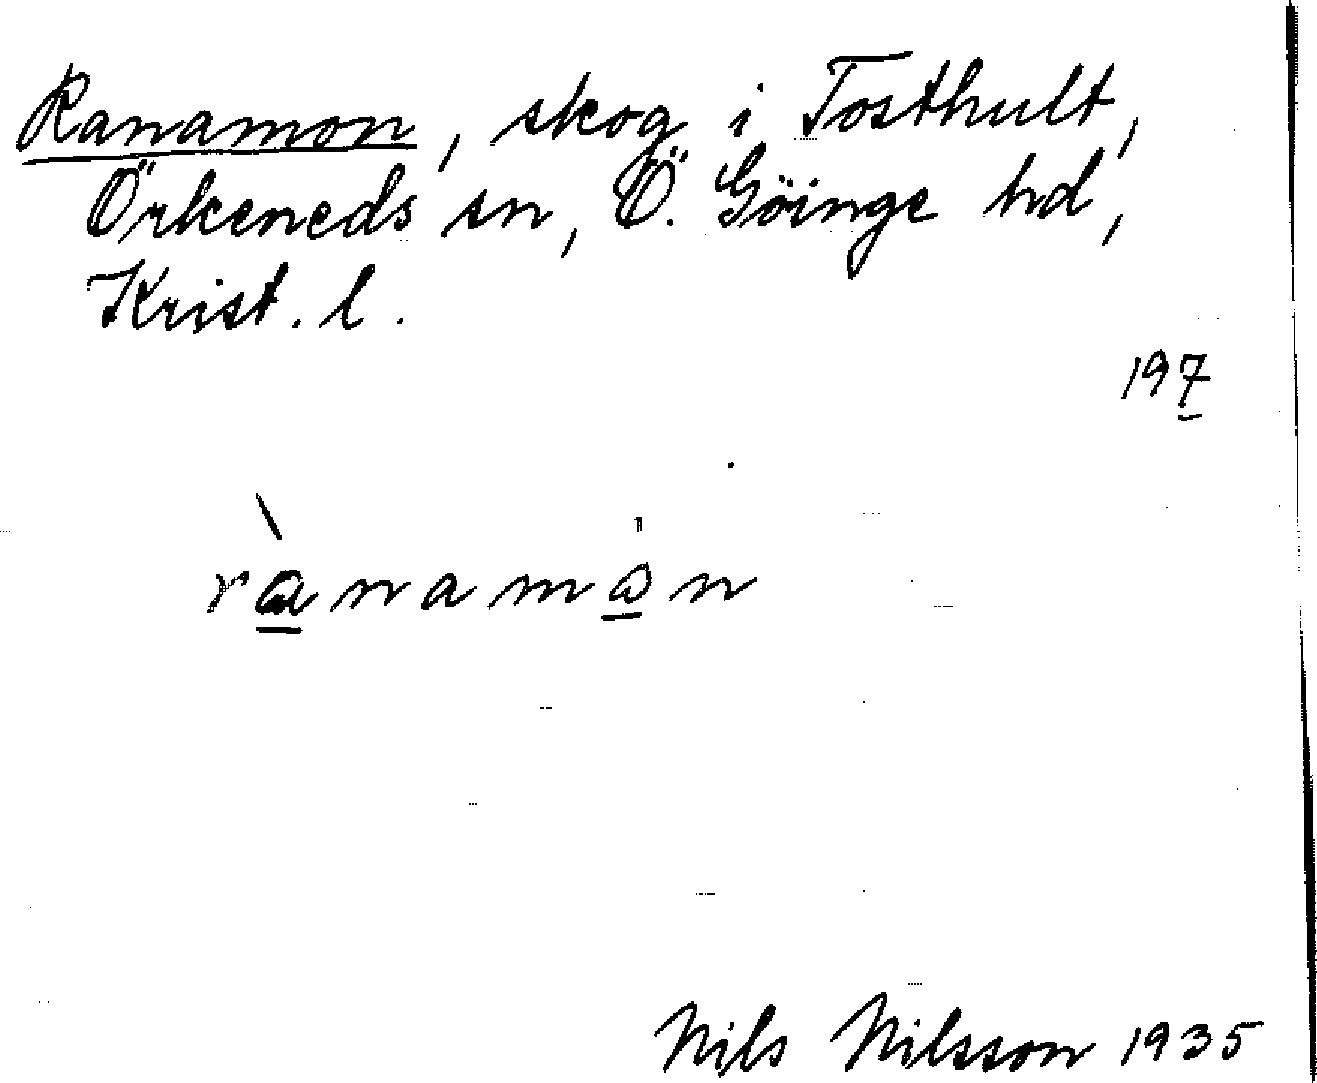 Ranamon, skog i Tosthult,
Örkeneds sn, Ö. Göinge hd,
Krist. l.
197
rànamån
Nils Nilsson 1935